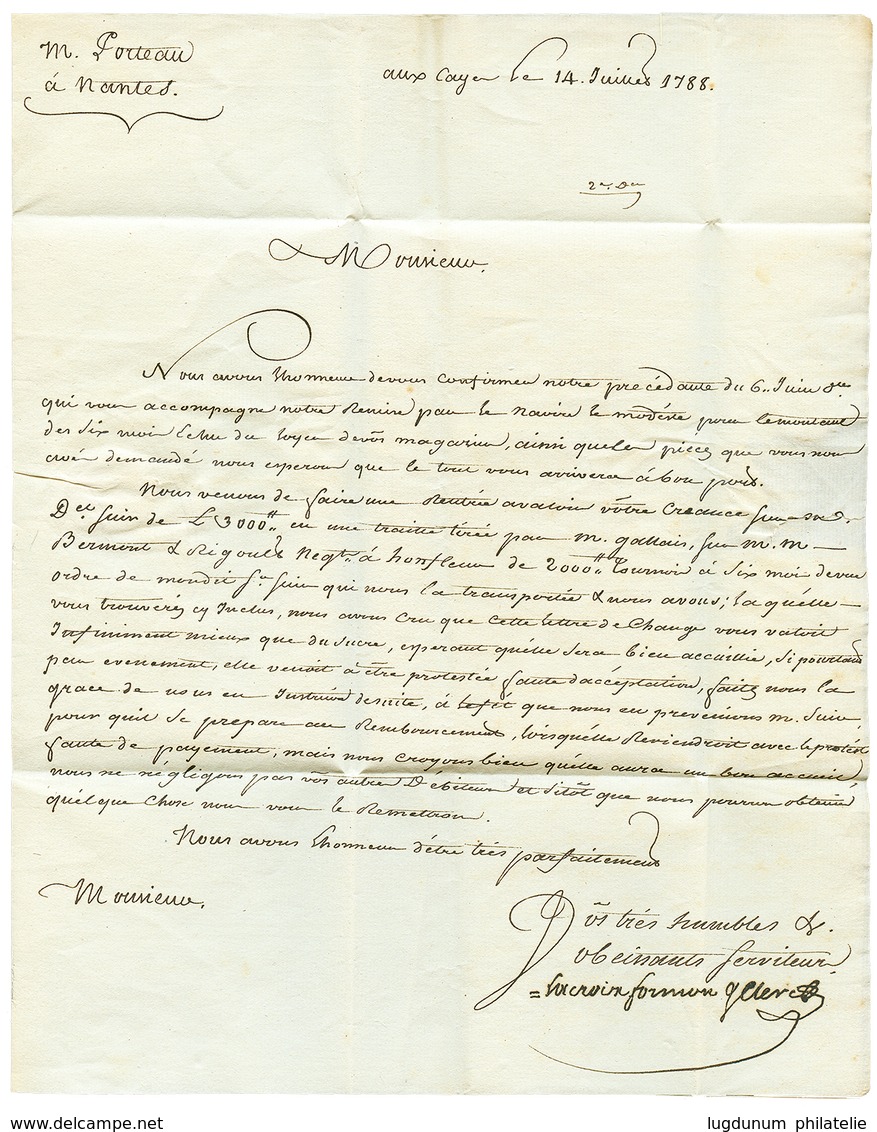 M. Porteau
à Nantes.
aux Cayes le 14. Juillet 1788.
2e. Don
Monsieur.
Nous avons l'honneur de vous Confirmer notre précédante du 6.. Juin
qui vous accompagne notre Remise par le navire le modeste pour le montant
des Six mois Echu du loyer de vos magasins, ainsi que les pièces que vous nous
avés demandé nous esperons que le tout vous arrivera à bon port.
Nous venons de faire une Rentrée a valoir vôtre Creance sur
de £ 3000.. en une traitte tirée par M. gallais, sur M. M
Bermont & Rigoult Negts. à honfleur de 2000.. Tournois à Six mois de vue
ordre de mondit Sr. qui nous la transportée & nous a vous; la quélle
vous trouverés cy Inclus, nous avons Cru que Cette lettre de Change vous valoit
Infiniment mieux que du Sucre, esperant quélle Sera bien accuillie, Si pourtant
par evenement, elle venoit à être protestée faute d'accéptation, faites nous la
grace de nous en Instruire de suite, à que nous en prevenions M.
pour quil Se prepare au Remboursement, lorsquélle Reviendroit avec le protêt
faute de payement, mais nous Croyons bien quélle aura un bon accueil
nous ne négligons pas vos autres Débiteurs et Sitôt que nous pourrons obtenir
quélque Chose nous vous le Remettrons.
Nous avons l'honneur d'être très parfaitement
Monsieur.
Vos très humbles &
obeissants Serviteurs
= Lacroix formon & Clerc
lugdunum philatelie